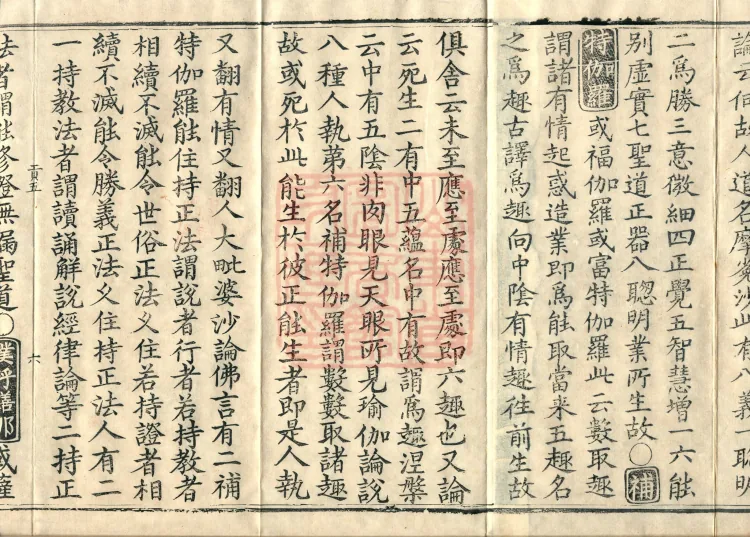 論云何故人道名摩㝹沙此有八義一聰明
二爲勝三意微細四正覺五智慧增一六能
别虛實七聖道正器八聰明業所生故〇補
特伽羅或福伽羅或富特伽羅此云數取趣
謂諸有情起惑造業即爲能取當来五趣名
之爲趣古譯爲趣向中陰有情趣徃前生故
俱舍云未至應至處應至處即六趣也又論
云死生二有中五蘊名中有故謂爲趣涅槃
云中有五陰非肉眼見天眼所見瑜伽論說
八種人執第六名補特伽羅謂數數取諸趣
故或死於此能生於彼正能生者即是人執
又翻有情又翻人大毗婆沙論佛言有二補
特伽羅能住持正法謂說者行者若持教者
相續不滅能令世俗正法久住若持證者相
續不滅能令勝義正法久住持正法人有二
一持教法者謂讀誦解說經律論等二持正
六
法者謂能修證無漏聖道〇僕呼繕那或薩